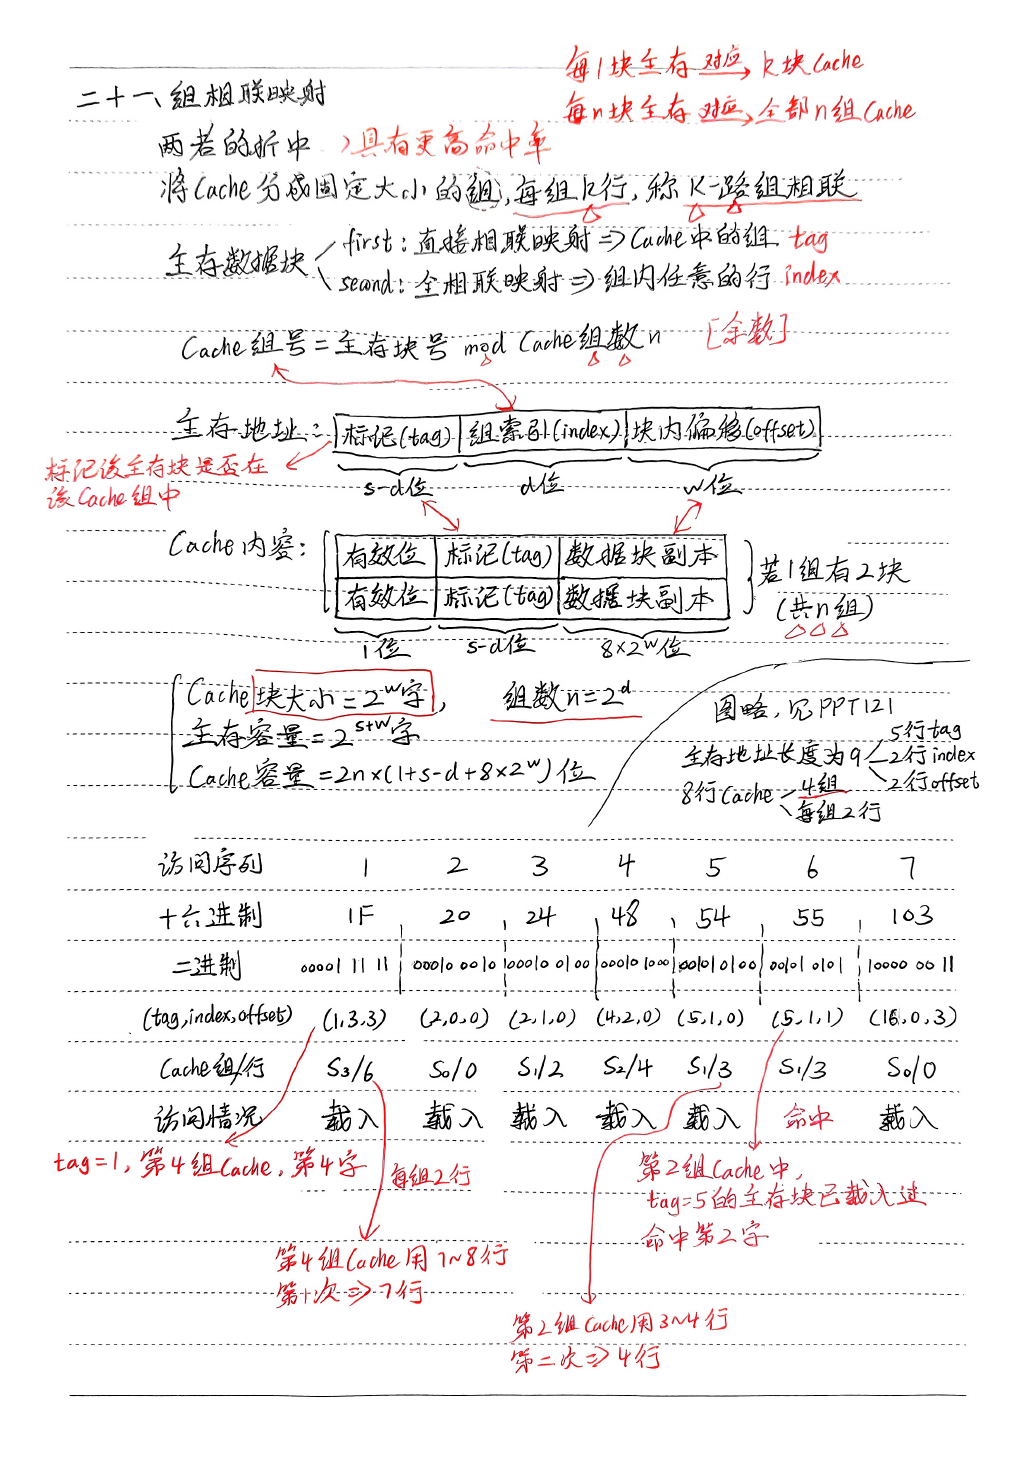 每1块主存 对应→ k块Cache
二十一、组相联映射
每n块主存 对应→ 全部n组Cache
两者的折中 具有更高命中率
将Cache分成固定大小的组,每组k行,称K-路组相联
主存数据块
first:直接相联映射⇒Cache中的组 tag
second:全相联映射⇒组内任意的行 index
Cache组号=主存块号 mod Cache组数n [余数]
主存地址: 标记(tag) 组索引(index) 块内偏移(offset)
标记该主存块是否在
该Cache组中
s-d位 d位 w位
Cache内容: 有效位 标记(tag) 数据块副本
有效位 标记(tag) 数据块副本
若1组有2块
(共n组)
1位 s-d位 8×2^w位
Cache块大小=2^w字, 组数n=2^d
主存容量=2^(s+w)字
Cache容量=2n×(1+s-d+8×2^w)位
图略,见PPT121
主存地址长度为9
5行tag
2行index
2行offset
8行Cache
4组
每组2行
访问序列 1 2 3 4 5 6 7
十六进制 1F 20 24 48 54 55 103
二进制 00001 11 11 00010 00 10 00010 0 100 00010 1000 00101 0100 00101 0101 10000 00 11
(tag,index,offset) (1,3,3) (2,0,0) (2,1,0) (4,2,0) (5,1,0) (5,1,1) (16,0,3)
Cache组/行 S3/6 S0/0 S1/2 S2/4 S1/3 S1/3 S0/0
访问情况 载入 载入 载入 载入 载入 命中 载入
tag=1,第4组Cache,第4字
每组2行
第2组Cache中,
tag=5的主存块已载入过
命中第2字
第4组Cache用7~8行
第1次⇒7行
第2组Cache用3~4行
第二次⇒4行